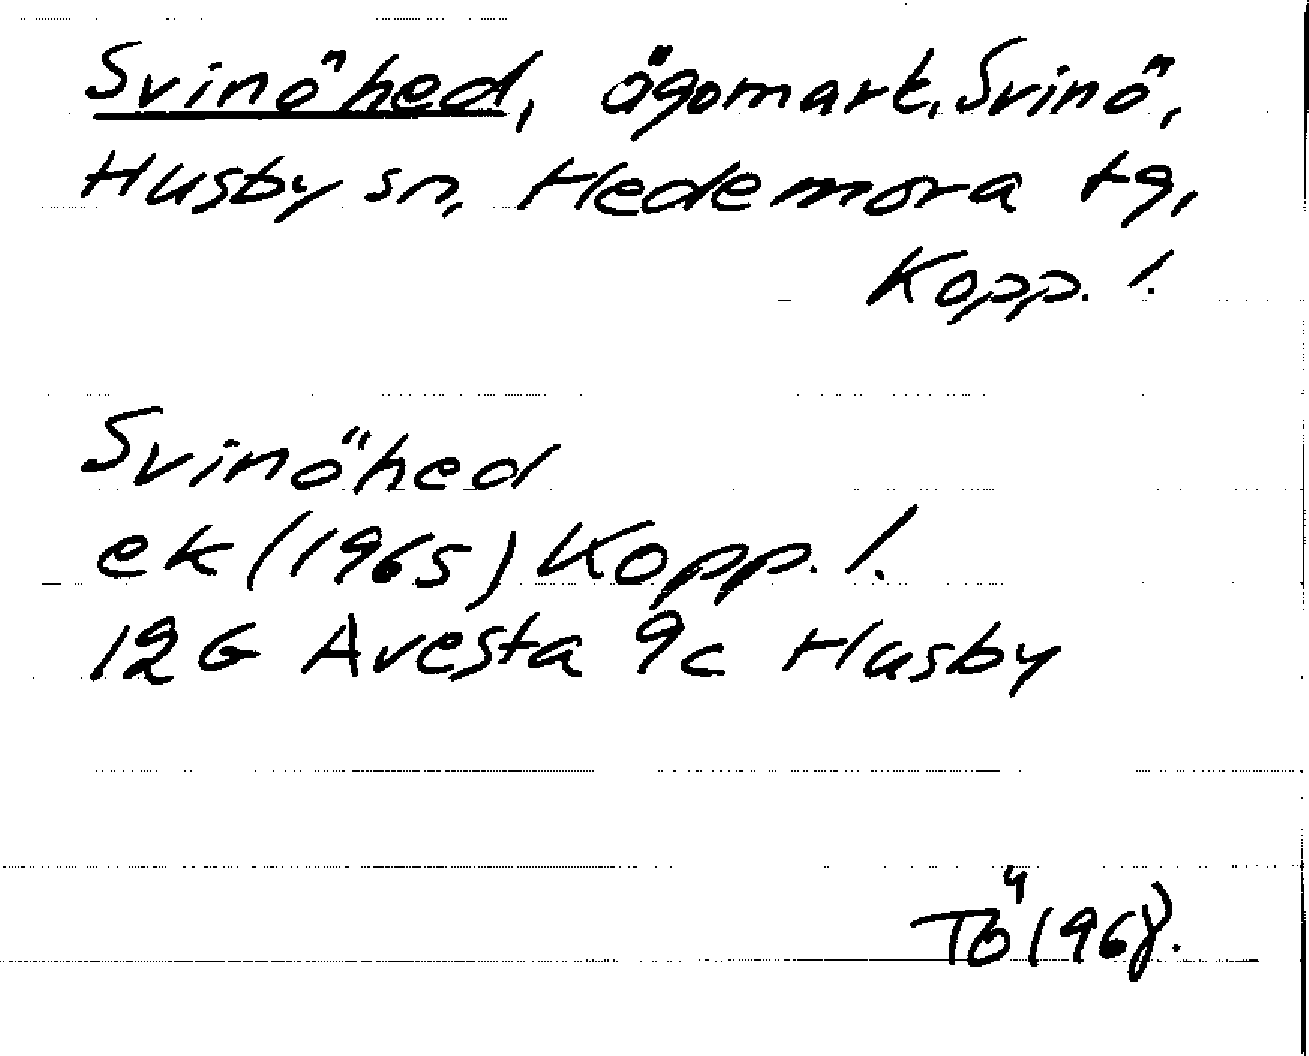 Svinöhed, ägomark, Svinö,
Husby sn, Hedemora tg,
Kopp. l.
Svinöhed
ek (1965) Kopp. l.
12G Avesta 9c Husby
Tö 1968.